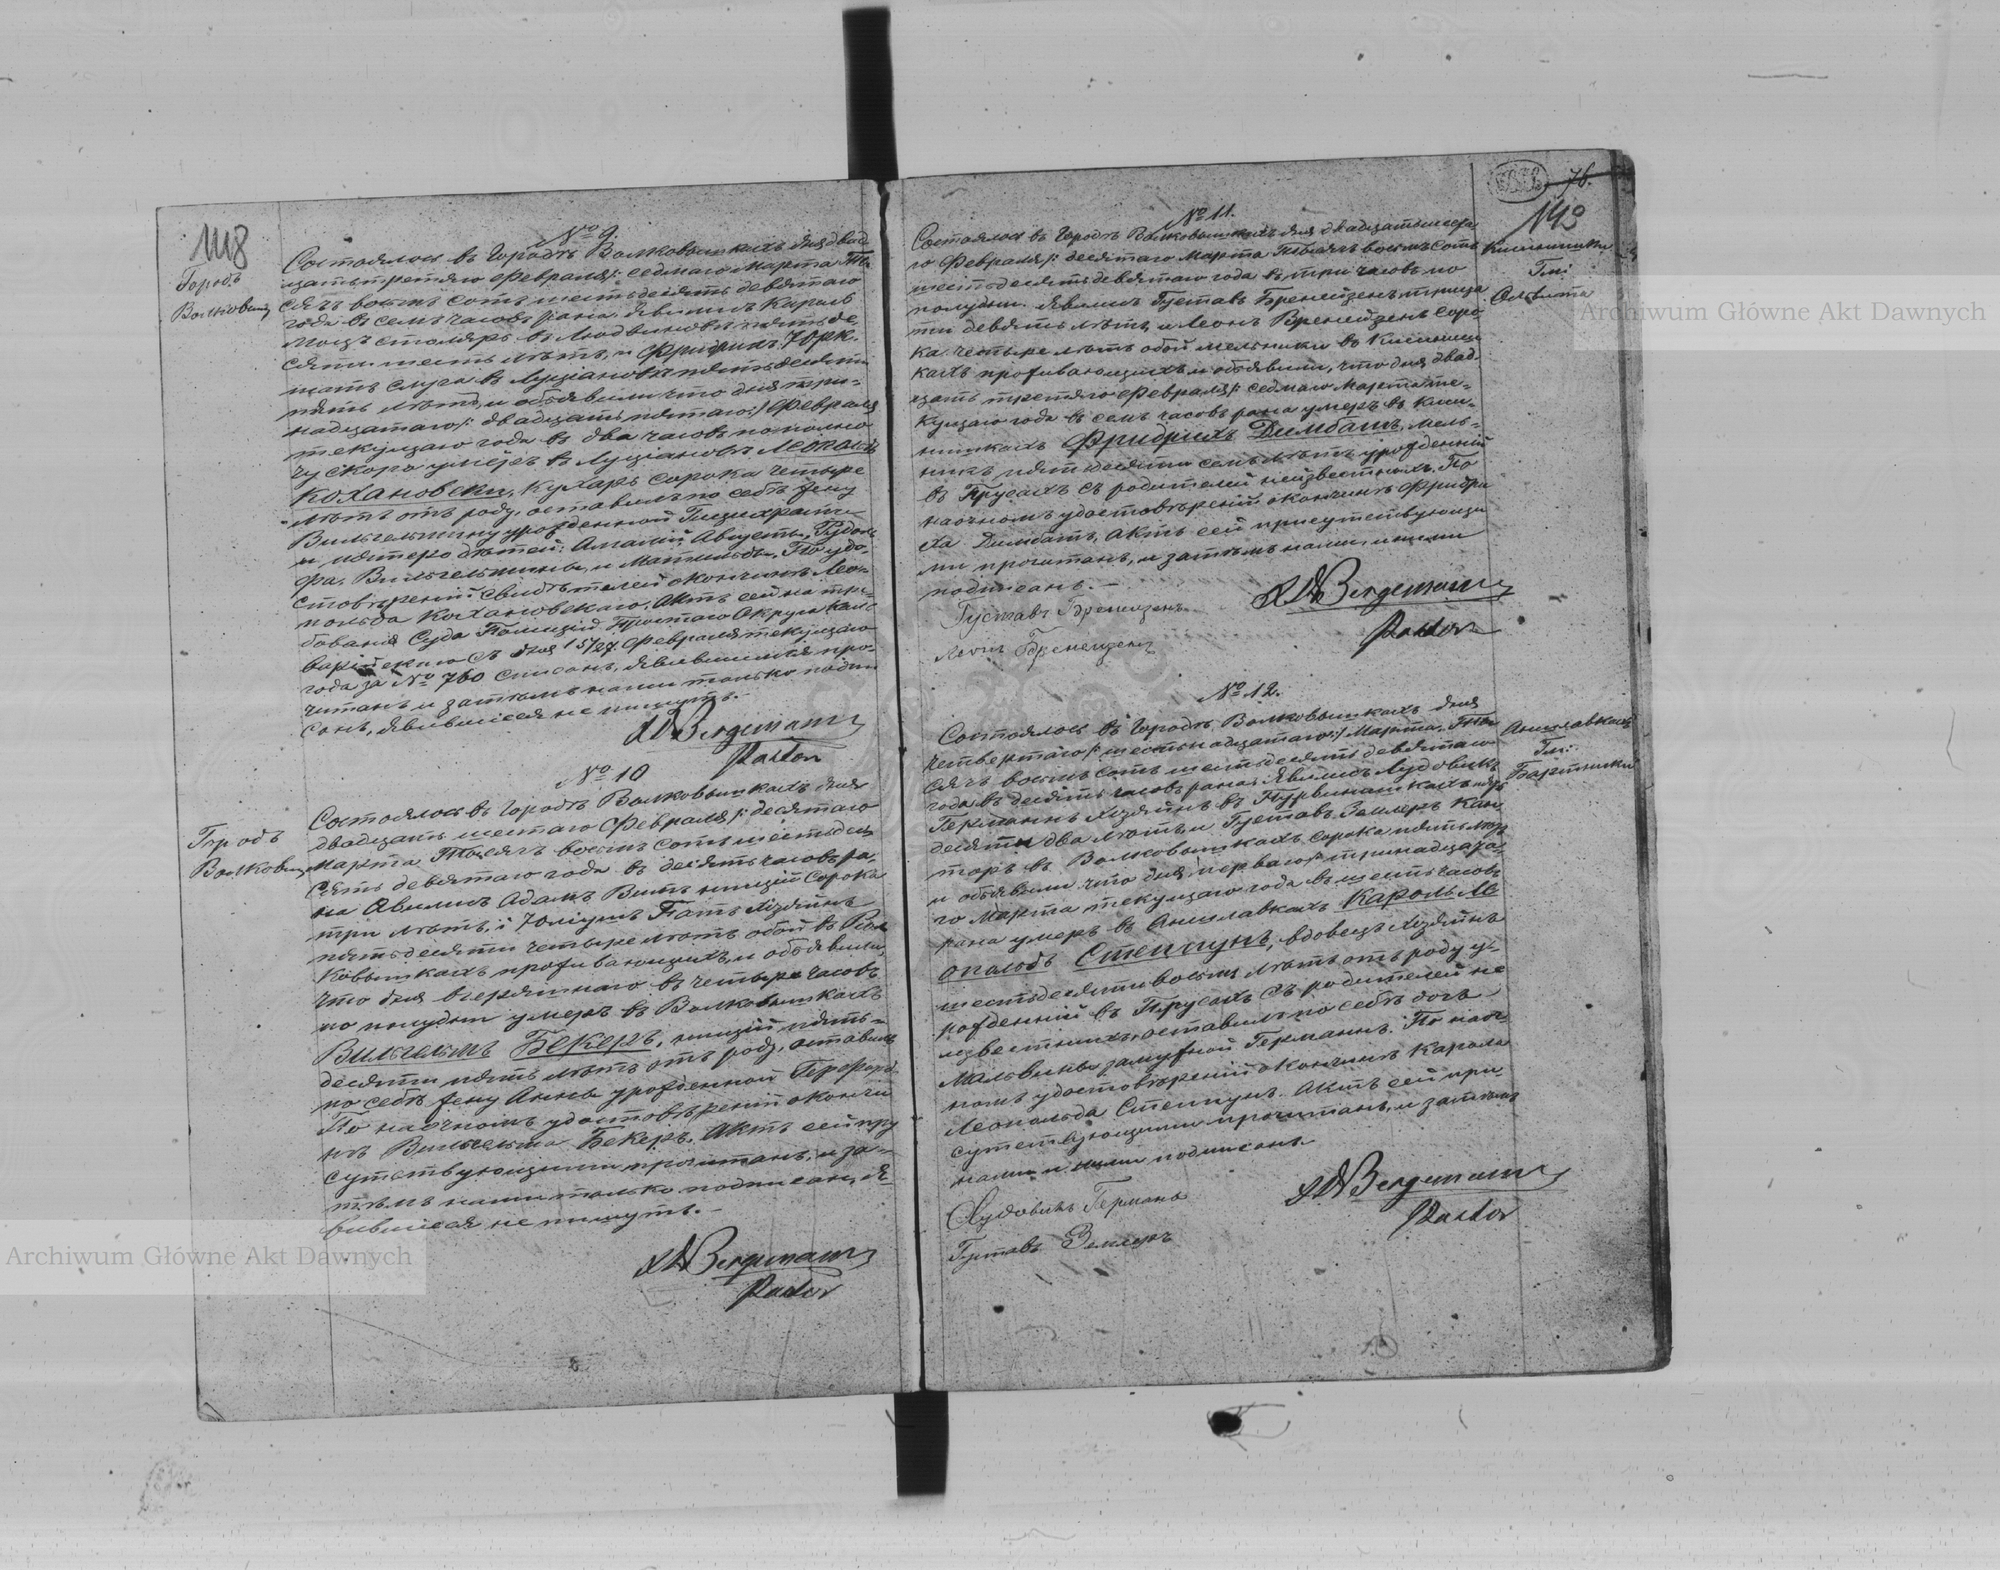 148
Городъ
Волковишк
№ 9.
Состоялось въ Городѣ Волковышкахъ дня двад-
цать третяго Февраля /: седмаго Марта Ты-
сячъ восмь сотъ шестьдесять девятаго
года въ семь часовъ рана. Явились Кароль
Мощъ столяръ въ Людвиновѣ пятьде-
сяти шесть лѣтъ, и Фридрихъ
слуга въ Луціановѣ пятьдесяти
пять лѣтъ, и объявили что дня три-
надцатаго /: двадцать пятаго :/ Февраля
текущаго года въ два часовъ пополно
чу скоро умеръ въ Луціановѣ Леопольдъ
Кохановски, кухаръ сорока четыре
лѣтъ отъ роду, оставилъ по себѣ жену
Вильгельмину урожденной
и пятеро дѣтей: Амалій, Августы, Рудоль
фа, Вильгельмины, и Матильды, По удо-
стовѣреній свидѣтелей окончинѣ Лео-
польда Кохановскаго, Актъ сей на тре-
бованія Суда Полицій Простаго Округи Каль
варійскаго съ дня 15/27 Февраля текущаго
года за № 760 списанъ, явившимся про-
читанъ и затѣмъ нами только подпи
санъ, явившіеся не пишутъ.-
Bergemann
Pastor
Городъ
Волковишк
№ 10
Состоялось въ Городѣ Волковышкахъ дня
двадцать шестаго Февраля /: десятаго
Марта Тысячъ восмь сотъ шестьдес
сять девятаго года въ десять часовъ ра-
на Явились Адамъ Витъ нищій сорока
три лѣтъ, и Патъ Хозяинъ
пятьдесяти четыре лѣтъ обой въ Вол
ковышкахъ проживающихъ, и объявили,
что дня вчерашнаго въ четыре часовъ
по полудни умеръ въ Волковышкахъ
Вильгельмъ Бекеръ, нищій пять-
десяти пять лѣтъ отъ роду, оставилъ
по себѣ жену Анны урожденной
По наочномъ удостовѣреній окончи
нѣ Вильгельма Бекеръ. Актъ сей при
сутствующими прочитанъ, и за-
тѣмъ нами только подписанъ, я-
вившіеся не пишутъ.-
Bergemann
Pastor
76.
Кисинишки
Гм:
Ольвита
№ 11.
Состоялось въ Городѣ Волковышкахъ дня двадцать шеста
го Февраля /: десятаго Марта Тысячъ восмь сотъ
шестьдесять девятаго года въ три часовъ по
полудни. Явились Густавъ Бренейзенъ трица
ти девять лѣтъ, и Леонъ Бренейзенъ соро
ка четыре лѣтъ обой мельники въ Кисиниш
кахъ проживающихъ и объявили, что дня двад-
цать третяго Февраля /: седмаго Марта те-
кущаго года въ семь часовъ рана умеръ въ Киси-
нишкахъ Фридрихъ Димбатъ, мель-
никъ пятьдесяти семь лѣтъ урожденній
въ Прусахъ съ родителей неизвестныхъ. По
наочномъ удостовѣреній окончинѣ Фридри
ха Димбатъ, Актъ сей присутствующи
ми прочитанъ, и затѣмъ нами и ними
подписанъ.-
Густавъ Бренейзенъ
Леонъ Бренейзенъ
Bergemann
Pastor
Анилавкахъ
Гм:
Бартники
№ 12.
Состоялось въ Городѣ Волковышкахъ дня
четвертаго /: шестьнадцатаго :/ Марта, Ты-
сячъ восмь сотъ шестьдесять девятаго
года въ десять часовъ рана. Явились Лудовикъ
Германнъ Хозяинъ въ пять
десяти два лѣтъ, и Густавъ Землеръ Кан
торъ въ Волковышкахъ сорока пять лѣтъ
и объявили что дня первого /: тринадцата-
го Марта текущаго года въ шесть часовъ
рана умеръ въ Анилавкахъ Кароль Ле
опольдъ Степпунъ, вдовецъ Хозяинъ
шестьдесяти восми лѣтъ отъ роду у-
рожденній въ Прусахъ съ родителей не
известныхъ, оставилъ по себѣ дочь
Мальвины замужной Германнъ. По наоч-
номъ удостовѣреній окончинѣ Кароля
Леопольда Степпунъ. Актъ сей при
сутствующими прочитанъ, и затѣмъ
нами и ними подписанъ
Лудовикъ Германъ
Густавъ Землеръ
Bergemann
Pastor
Archiwum Główne Akt Dawnych
Archiwum Główne Akt Dawnych